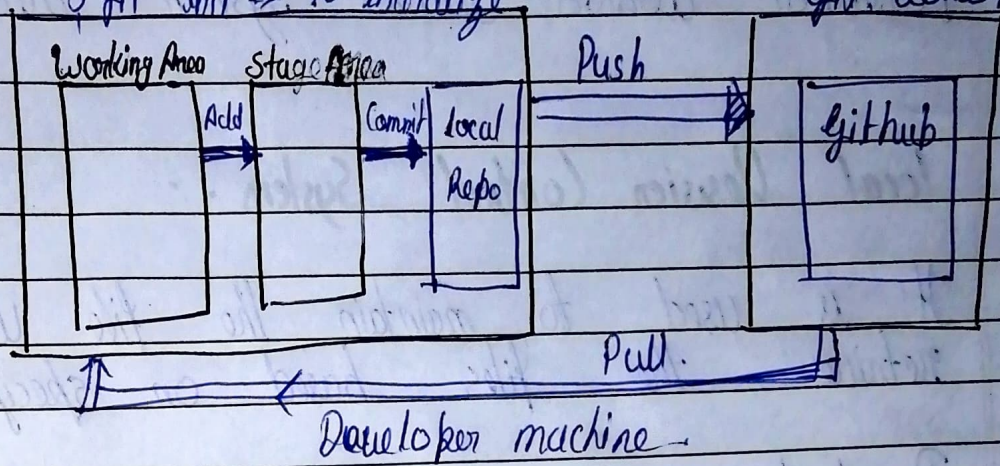 Working Area Stage Area
Push
Add
Commit
Local
Repo
Github
Pull.
Developer machine -